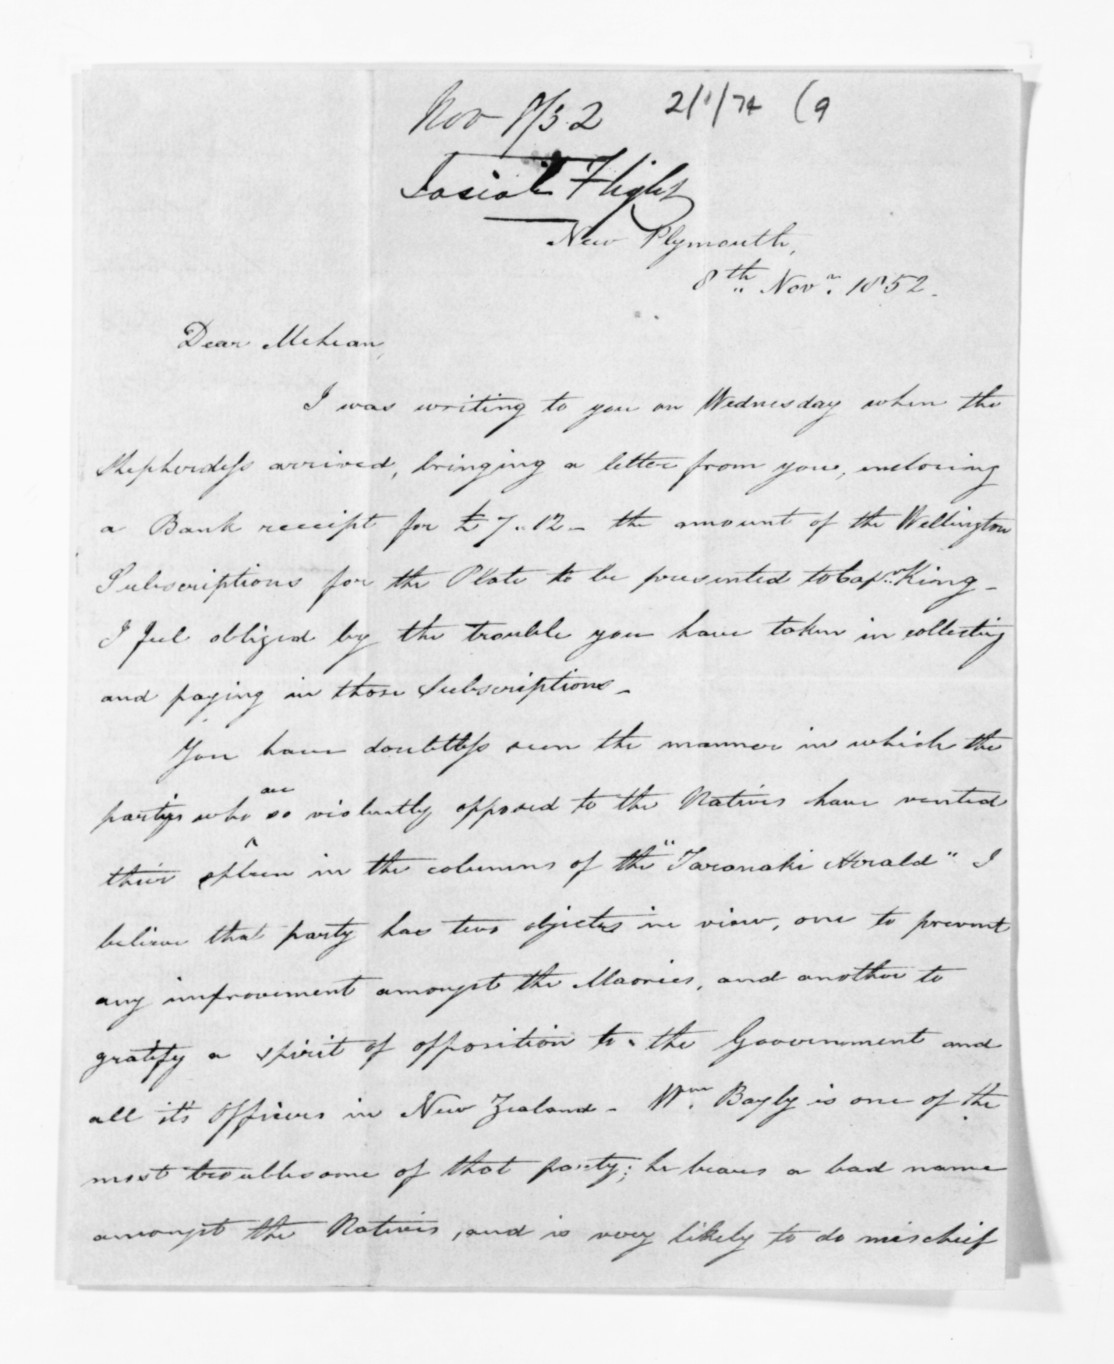 Nov 8/52 2/1/74 (9
Josiah Flight
New Plymouth,
8th Novr. 1852.
Dear McLean,
I was writing to you on Wednesday when the
Shepherdess arrived, bringing a letter from you, enclosing
a Bank receipt for £7..12 - the amount of the Wellington
Subscriptions for the Plate to be presented to Capn. King -
I feel obliged by the trouble you have taken in collecting
and paying in those Subscriptions -
You have doubtless seen the manner in which the
are
partys who so violently opposed to the Natives have vented
their spleen in the columns of the "Taranaki Herald" I
believe that party has two objects in view, one to prevent
any improvement amongst the Maories, and another to
gratify a spirit of opposition to the Government and
all it's Officers in New Zealand - Wm. Bayly is one of the
most troublesome of that party; he bears a bad name
amongst the Natives, and is very likely to do mischief